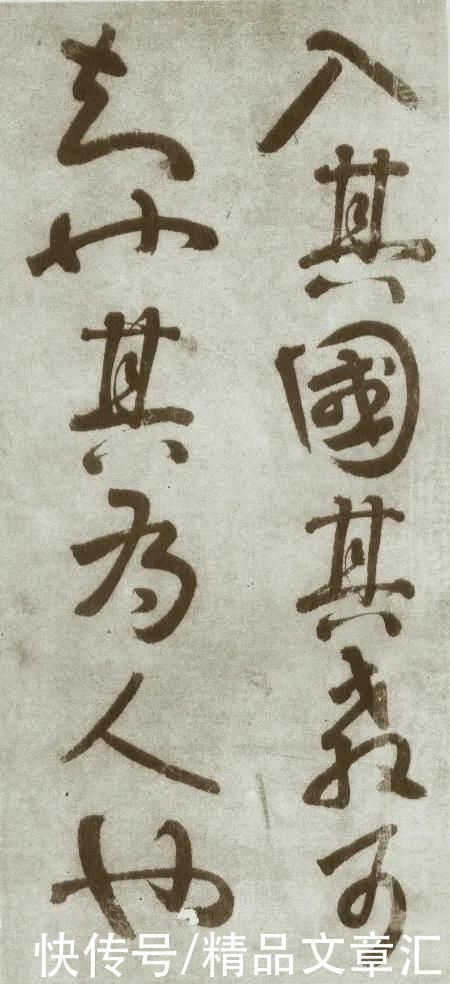 入其國其教可
知也其為人也
快传号/精品文章汇